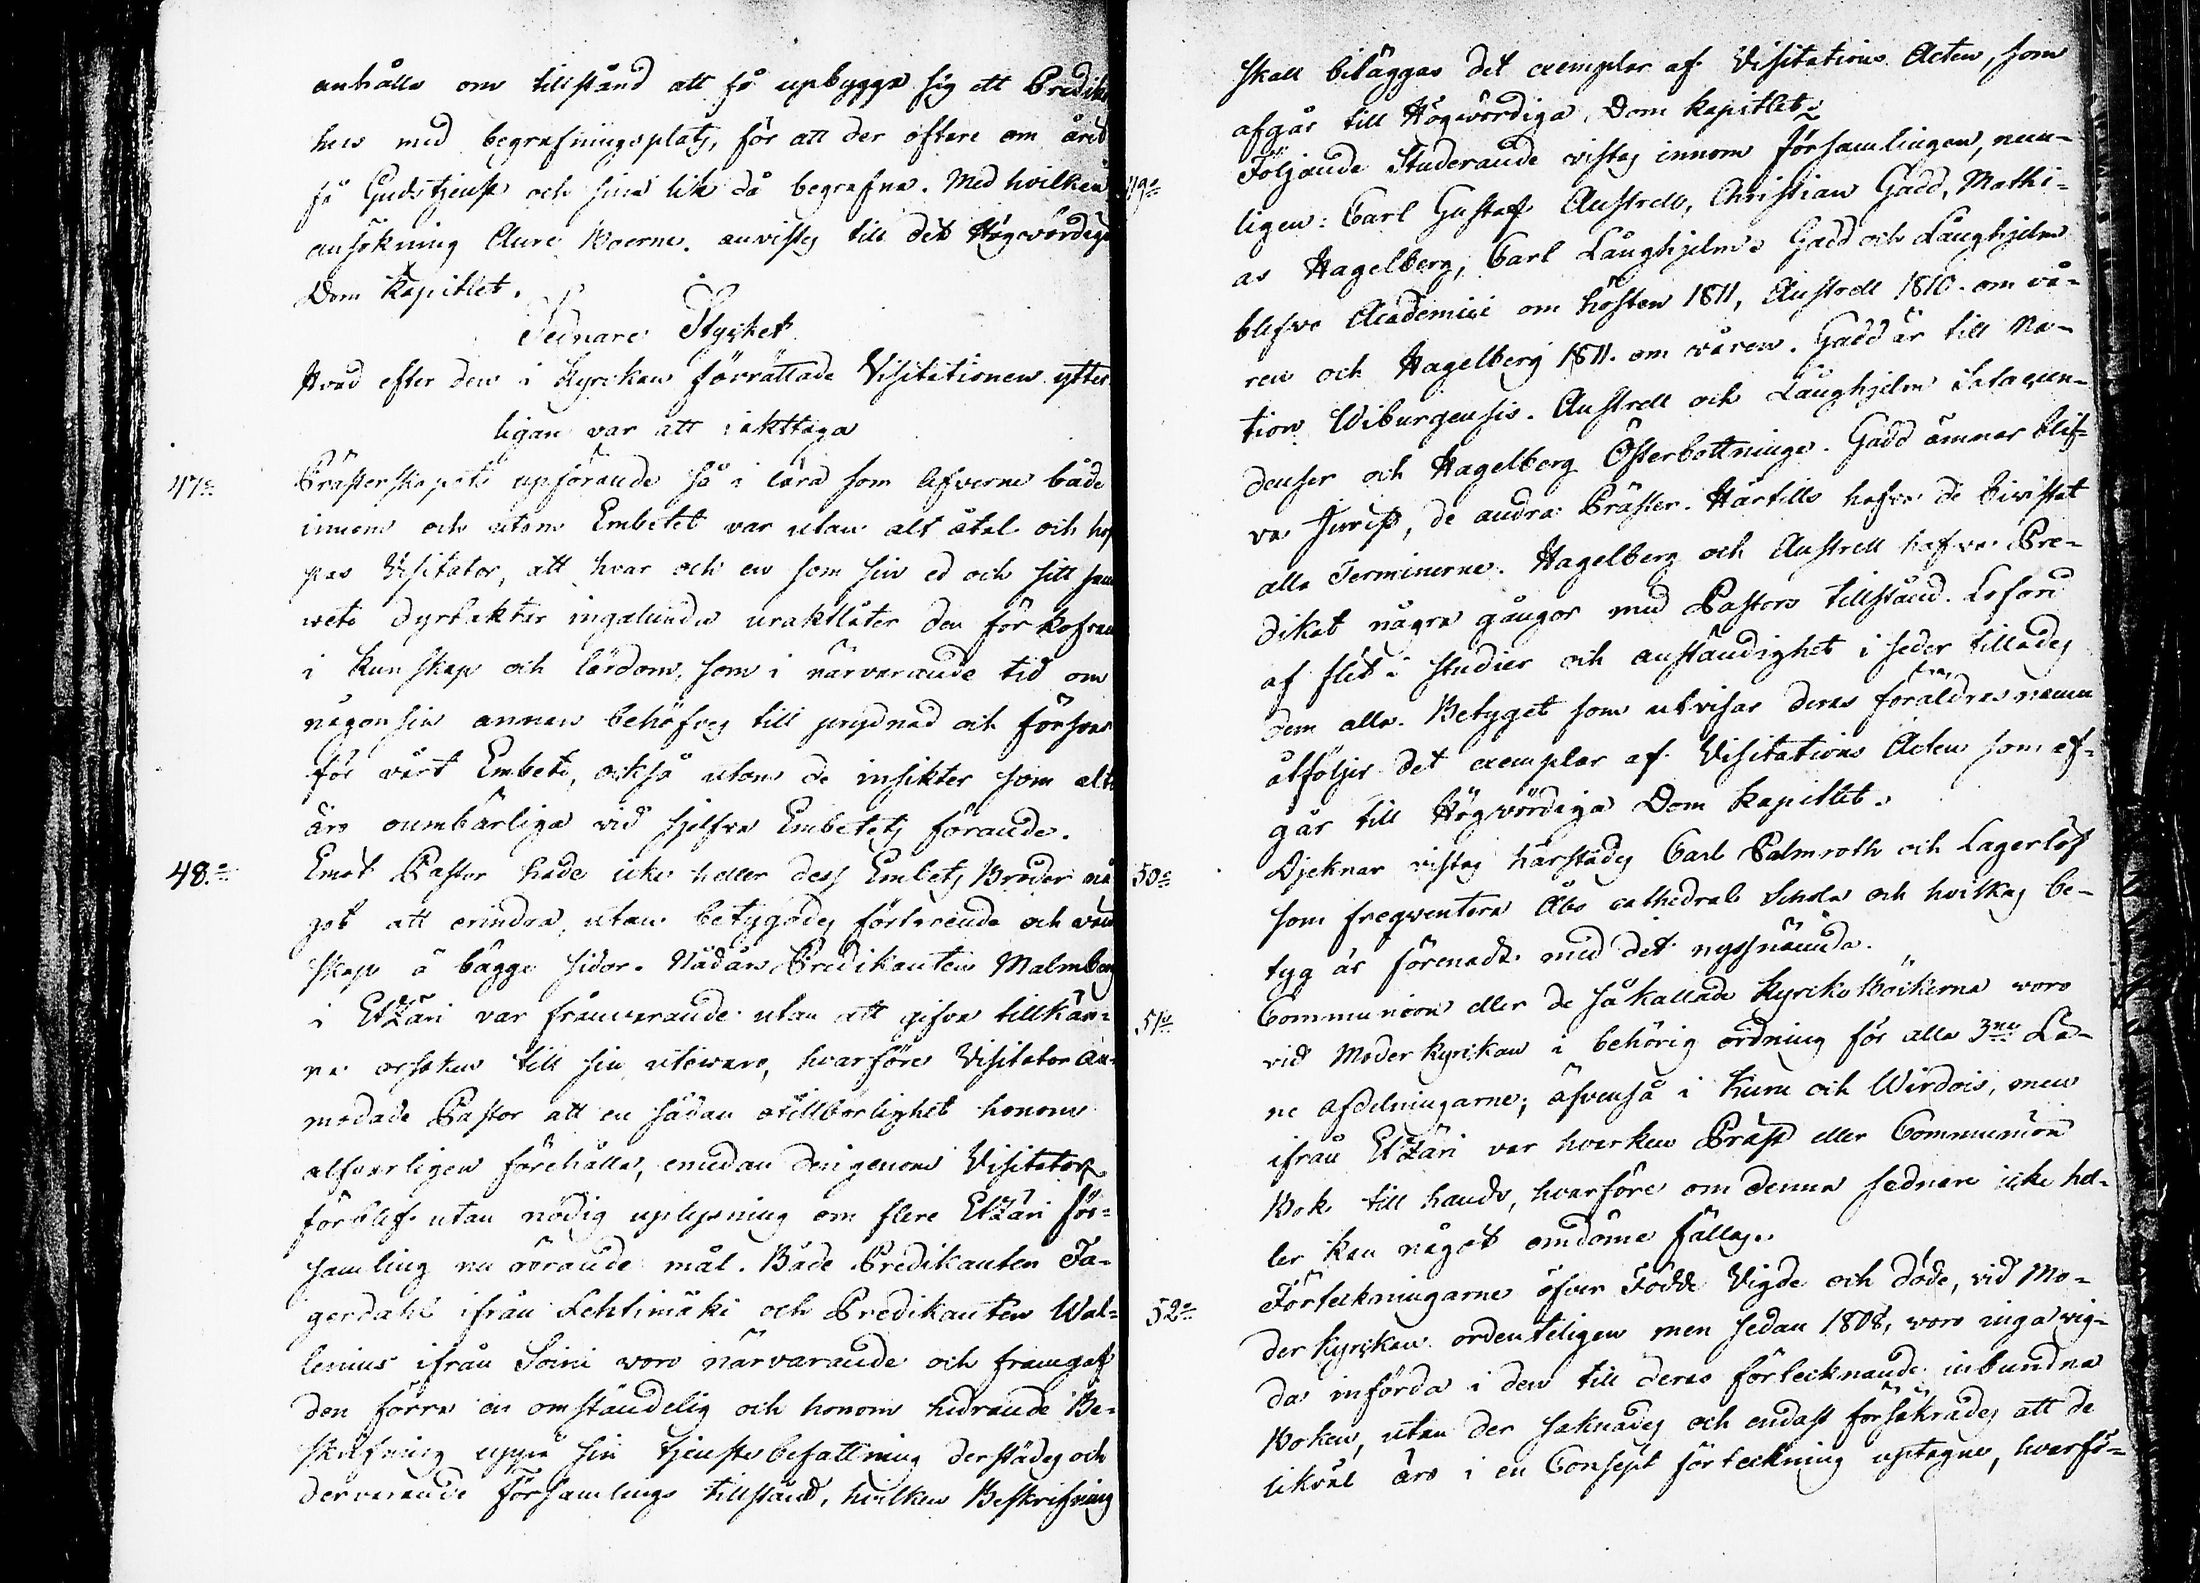 anhålla om tillstånd att få upbygga sig ett Predik
hus med begrafningsplats, för att der oftare om året
få Gudstjenst och sina lik då begrafna. Med hvilken
ansökning Alavo Boerne anvistes till det Högvördiga
Dom Kapitlet.
Sednare Stycket
Hvad efter den i Kyrckan förrättade Visitationen ytter
ligare var att iakttaga
47:o Prästerskapets upförande så i lära som lefverne både
innom och utom Embetet var utan alt åtal och hop
pas Visitator, att hvar och en som sin ed och sitt sam
wete dyrt aktar ingalunda uraktlåter den förkofran
i kunskap och lärdom, som i närvarande tid om
någonsin annars behöfves till prydnad och försvar
för vårt Embete, också utom de insikter som alt
äro oumbärliga vid sjelfva Embetets förande.
48:o Emot Pastor hade icke heller dess Embets Bröder nå
got att erindra, utan betygades förtroende och vän
skap å bägge sidor. Nådårs Predikanten Malmberg
i Etzäri var frånvarande utan att gifva tillkän-
na orsaken till sin utevaro, hvarföre Visitator an-
modade Pastor att en sådan otillbörlighet honom
alfvarligen förehålla, emedan derigenom Visitator
förblef utan nödig uplysning om flere Etzäri för-
samling nu rörande mål. Både Predikanten Fa-
gerdahl ifrån Lehtimäki och Predikanten Wal-
lenius ifrån Soini voro närvarande och framgaf
den förra en omständelig och honom hedrande Be-
skrifning uppå sin tjenstebefattning derstädes och
dervarande Församlings tillstånd, hvilken Beskrifning
skall biläggas det exemplar af Visitations Acten, som
afgår till Högvördiga Dom Kapitlet.
49:o Följande Studerande vistas innom Församlingen, nem-
ligen: Carl Gustaf Austrell, Christian Gadd, Mathi-
as Hagelberg, Carl Långhjelm. Gadd och Långhjelm
blefvo Academici om hösten 1811, Austrell 1810 om vå-
ren och Hagelberg 1811 om våren. Gadd är till Na-
tion Wiburgensis. Austrell och Långhjelm Satacun-
denser och Hagelberg Österbottninge. Gadd ämnar blif-
va Jurist, de andra Präster. Härtills hafva de bivistat
alla Terminerne. Hagelberg och Austrell hafva Pre-
dikat några gångor med Pastors tillstånd. Loford
af flit i studier och anständighet i seder tillades
dem alla. Betyget som utvisar deras föräldrars namn
åtföljer det exemplar af Visitations Acten som af-
går till Högvördiga Dom Kapitlet.
50:o Djeknar vistas härstädes Carl Palmroth och Lagerlöf
som freqventera Åbo cathedral Schola och hvilkas be-
tyg är förenadt med det nyssnämnda.
51:o Communion eller de så kallade Kyrko Böckerna voro
vid Moderkyrckan i behörig ordning för alla 3:ne Lä-
ne afdelningarne; äfvenså i Kure och Wirdois, men
ifrån Etzäri var hvarken Präst eller Communion
Bok till hands, hvarföre om denna sednare icke hel-
ler kan något omdöme fällas.
52:o Förteckningarne öfver Födde Vigde och döde, vid Mo-
derkyrckan ordenteligen men sedan 1808, voro inga vig-
da införda i den till deras förtecknande inbundna
Boken, utan der saknades och endast försäkrades att de
likväl äro i en Consept förteckning uptagne, hvarfö-